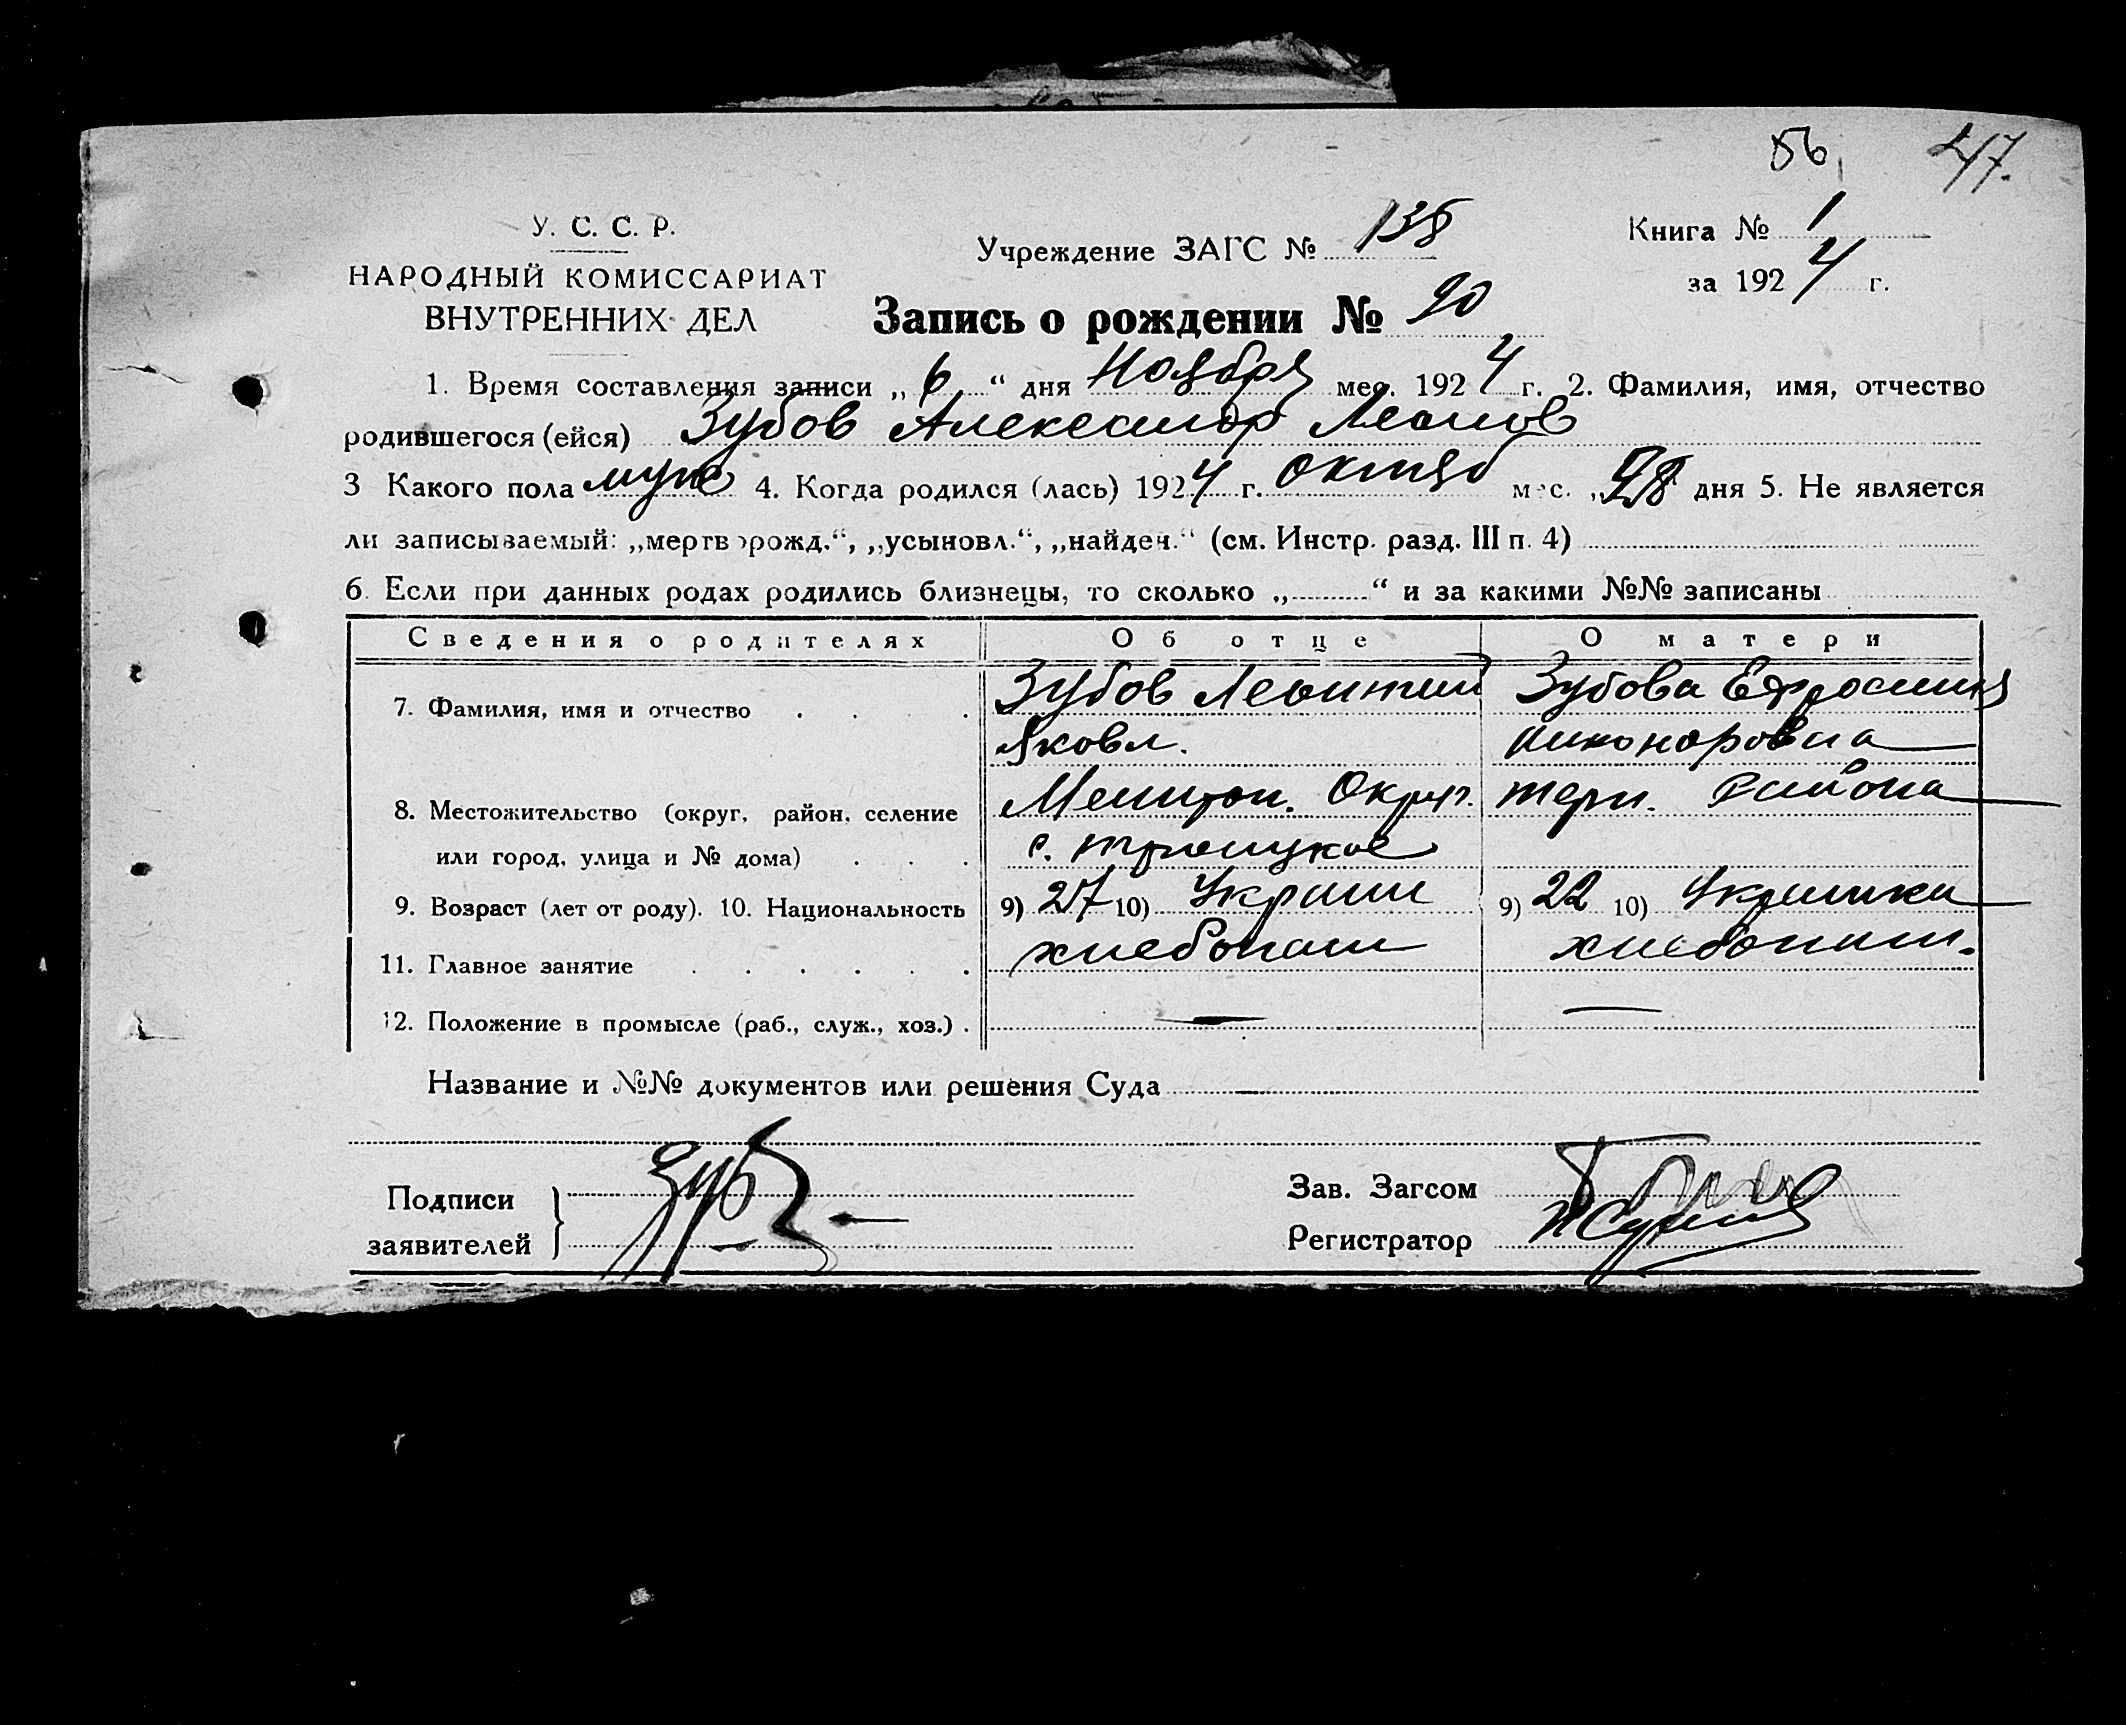 56 47.
У. С. С. Р.
НАРОДНЫЙ КОМИССАРИАТ
ВНУТРЕННИХ ДЕЛ
Учреждение ЗАГС № 138
Книга № 1
за 1924 г.
Запись о рождении № 90
1. Время составления записи „6“ дня Ноября мес. 1924 г. 2. Фамилия, имя, отчество
родившегося (ейся) Зубов Александр Леонов
3 Какого пола муж 4. Когда родился (лась) 1924 г. октяб мес. „28 дня 5. Не является
ли записываемый: „мертворожд.“, „усыновл.“, „найден.“ (см. Инстр. разд. III п. 4)
6. Если при данных родах родились близнецы, то сколько „ “ и за какими №№ записаны
Сведения о родителях Об отце О матери
7. Фамилия, имя и отчество Зубов Леонтий Зубова Ефросиния
Яковл. Никоноровна
8. Местожительство (округ, район, селение Мелитоп. Округ. терп. Района
или город, улица и № дома) с. троицкое
9. Возраст (лет от роду). 10. Национальность 9) 27 10) Украин 9) 22 10) Украинка
11. Главное занятие хлебопаш хлебопаш.
12. Положение в промысле (раб., служ., хоз.) . — —
Название и №№ документов или решения Суда —
Подписи
заявителей
Зуб
Зав. Загсом
Регистратор